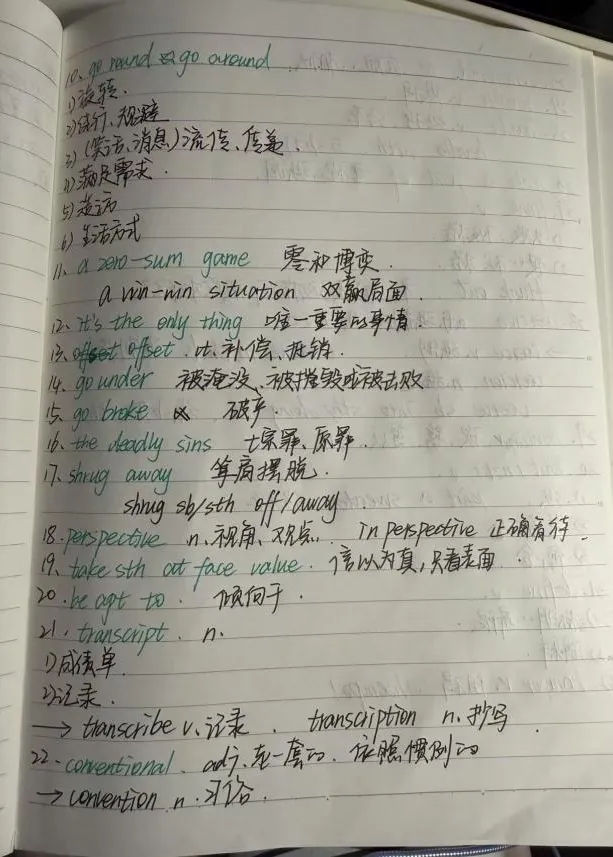 10、go round go around
1) 旋转.
2) 绕行、规避
3) (笑话、消息) 流传、传递.
4) 满足需求.
5) 造访
6) 生活方式
11、a zero-sum game 零和博弈.
a win-win situation 双赢局面.
12、it's the only thing 唯一重要的事情.
13、offset . vt. 补偿、抵销.
14、go under 被淹没、被摧毁或被击败
15、go broke 破产.
16、the deadly sins 七宗罪、原罪.
17、shrug away 耸肩摆脱.
shrug sb/sth off/away
18.perspective n.视角、观点. in perspective 正确看待.
19、take sth at face value. 信以为真,只看表面.
20.be apt to. 倾向于.
21.transcript. n.
1)成绩单.
2)记录.
→ transcribe v.记录. transcription n.抄写.
22.conventional. adj. 一套的. 依照惯例的
→ convention n.习俗.